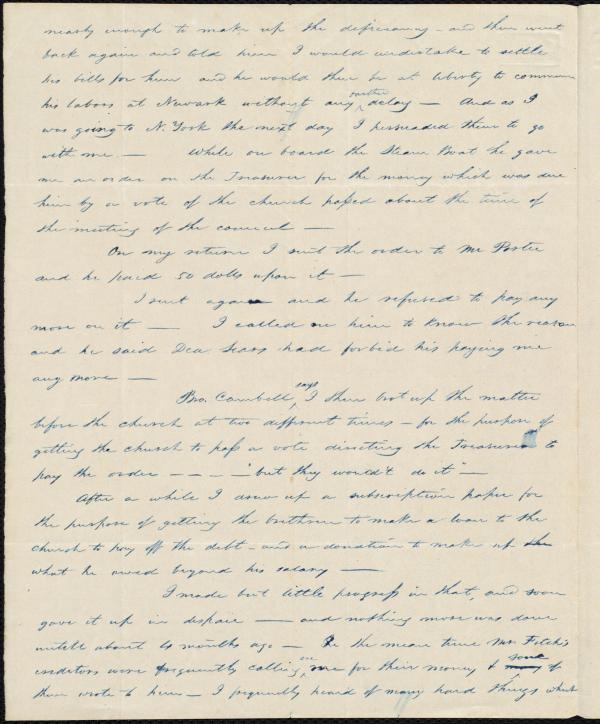 nearly enough to make up the deficiency – and then went
back again and told him I would undertake to settle
his bills for him and he would then be at liberty to commence
his labors at Newark without any further delay — And as I
was going to N. York the next day I persuaded them to go
with me — While on board the Steam Boat he gave
me an order on the Treasurer for the money which was due
him by a vote of the church passed about the time of
the meeting of the council —
On my return I sent the order to Mr Porter
and he paid 50 dolls upon it —
I sent again and he refused to pay any
more on it — I called on him to know the reason
and he said Dea Sears had forbid his paying me
any more —
Bro. Cambell, says I then brot up the matter
before the church at two different times – for the purpose of
getting the church to pass a vote directing the Treasurer to
pay the order – – – – "but they wouldn't do it" –
After a while I drew up a subscription paper for
the purpose of getting the brethren to make a loan to the
church to pay off the debt – and a donation to make up
what he owed beyond his salary —
I made but little progress in that, and soon
gave it up in despair — and nothing more was done
untill about 4 months ago – In the mean time Mr Fitch's
creditors were frequently calling on me for their money & some of
them wrote to him – I frequently heard of many hard things which